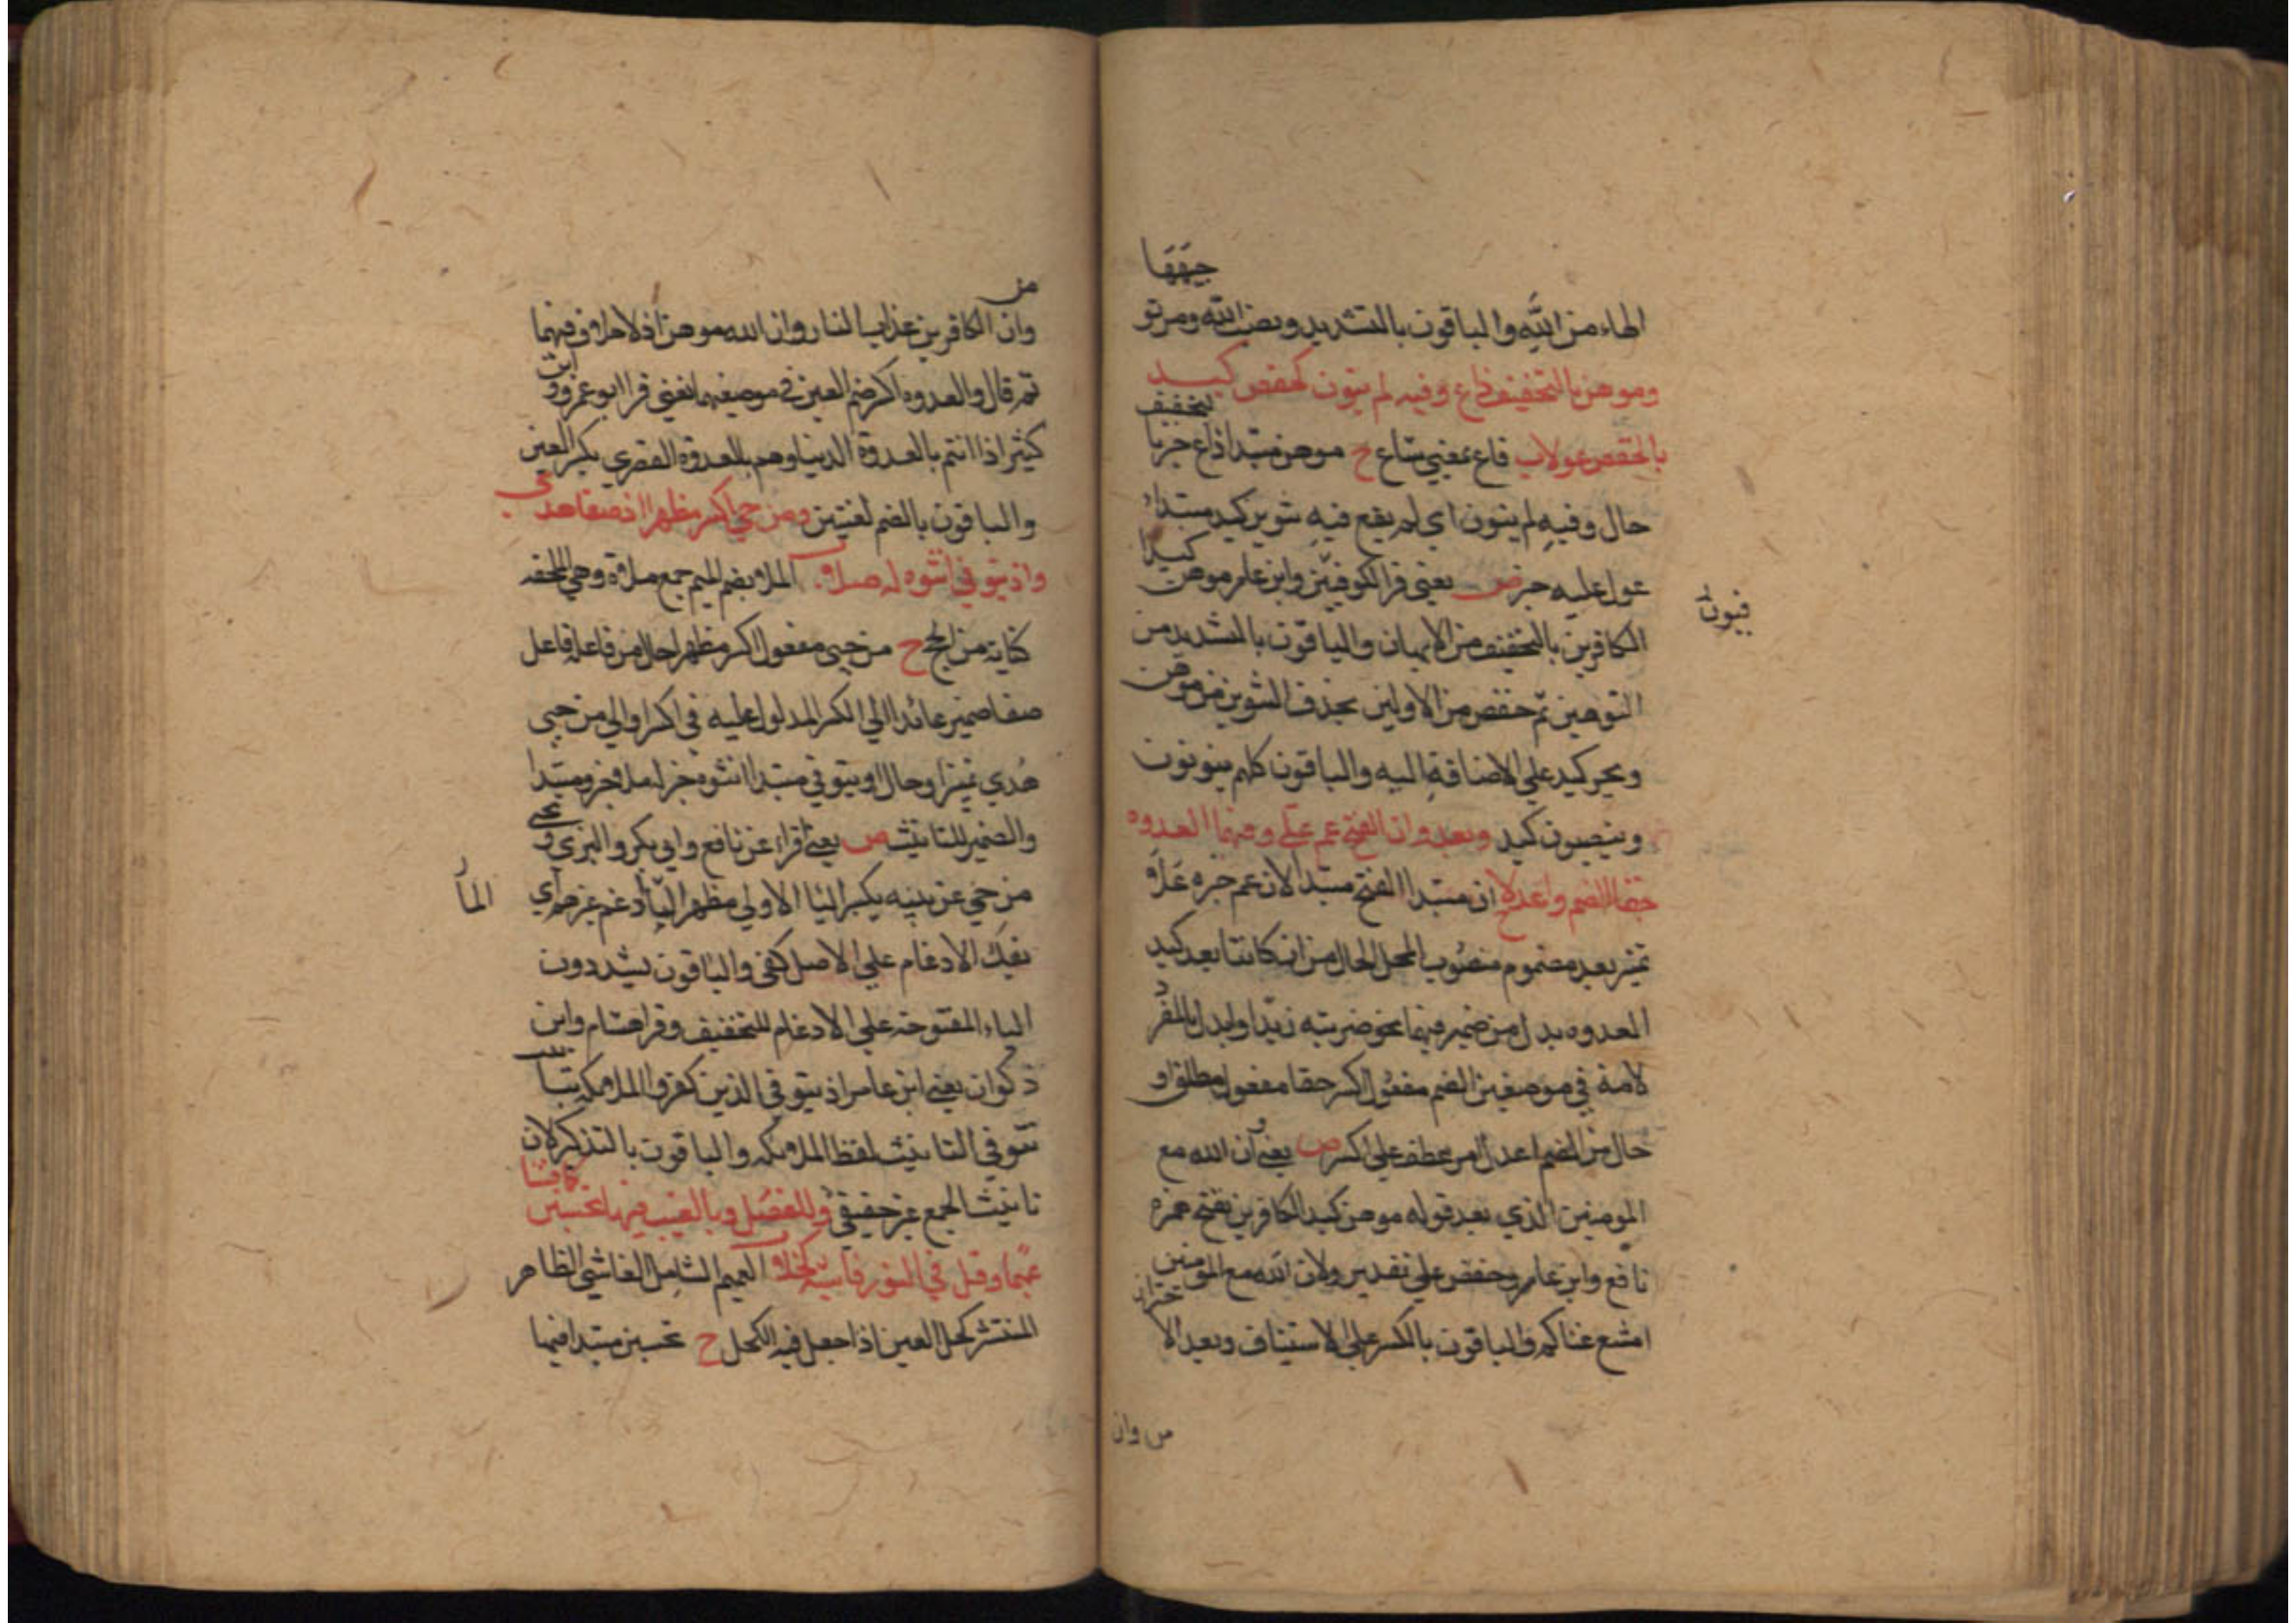 جهتها
الهاء من الله والباقون بالتشديد ونصب الله ومر تو
وموهن بالتخفيف ذاع وفيه لم ينون لحفص كيد
بالخفض عولا ب ذاع بمعنى شاع ح موهن مبتدا ذاع خبر با
لتخفيف
حال وفيه لم ينون اي لم يقع فيه تنوين كيد مبتداء
عول عليه خبر ص يعني قرا الكوفيين وابن عامر موهن
كيد
الكافرين بالتخفيف من الايهان والباقون بالتشديد من
التوهين ثم حفص من الاولين بحذف التنوين من موهن
وبجر كيد علي الاضافة اليه والباقون كلهم ينونون
وينصبون كيد وبعد وان الفتح عم علي وفيهما العدوه
حقا الضم واعدلا ان مبتدا الفتح مبتدا لان عم خبره علا و
تميز بعد مضموم منصوب المحل الحال من ان كائنا بعد كيد
العدوه بدل من ضمير فيهما نحو ضربته زيدا وابدل بالمفرد
لامة في موضعين الضم مفعول اكسر حقا مفعول مطلق او
حال من الضم اعدل امر عطف علي اكسر ص يعني وان الله مع
المومنين الذي بعد قوله موهن كيد الكافرين بفتح همزه
نافع وابن عامر وحفص علي تقدير ولان الله مع المومنين
امتنع عناكم والباقون بالكسر علي الاستيناف وبعد الا
من وان
من
وان الكافرين عذاب النار وان الله موهن اذ لا خلاف فيهما
ثم قال والعدوه اكسر ضم العين في موضعيهما يعني قرا ابو عمرو و
ابن
كثير اذ انتم بالعدوة الدنيا وهم بالعدوه القصوي بكسر العين
والباقون بالضم لغتين ومن حيي اكسر مظهرا اذ صفا هدي
واذ يتوفي انثوه له ملا ب الملا بضم الميم جمع ملاة وهي الملحفه
كناية من الحجج ح من حيي مفعول اكسر مظهرا حال من فاعله فاعل
صفا ضمير عائد الي الكسر المدلول عليه في اكسر او الي من حيي
هدي تميز او حال او يتوفي مبتدا انثوه خبر له ملا خبر ومبتدا
والضمير للتانيث ص يعني قراء عن نافع وابي بكر والبزي و
يحيي
من حي عن بينه بكسر اليا الاولي مظهر اليا ادغم غيرهم اي
بفك الادغام علي الاصل كفي والباقون يشددون
الياء المفتوحة علي الادغام للتخفيف وقرا هشام وابن
ذكوان يعني ابن عامر اذ يتوفي الذين كفروا الملائكه بتا
تتوفي التانيث لفظ الملائكه والباقون بالتذكير لان
تانيث الجمع غير حقيقي وللفضل وبالغيب فيها تحسبن
كما فشا
عميما وقل في النور فاشيه كحلا ب العميم الشامل الفاشي الظاهر
المنتشر كحل العين اذا جعل فيه الكحل ح تحسبن مبتدا فيها